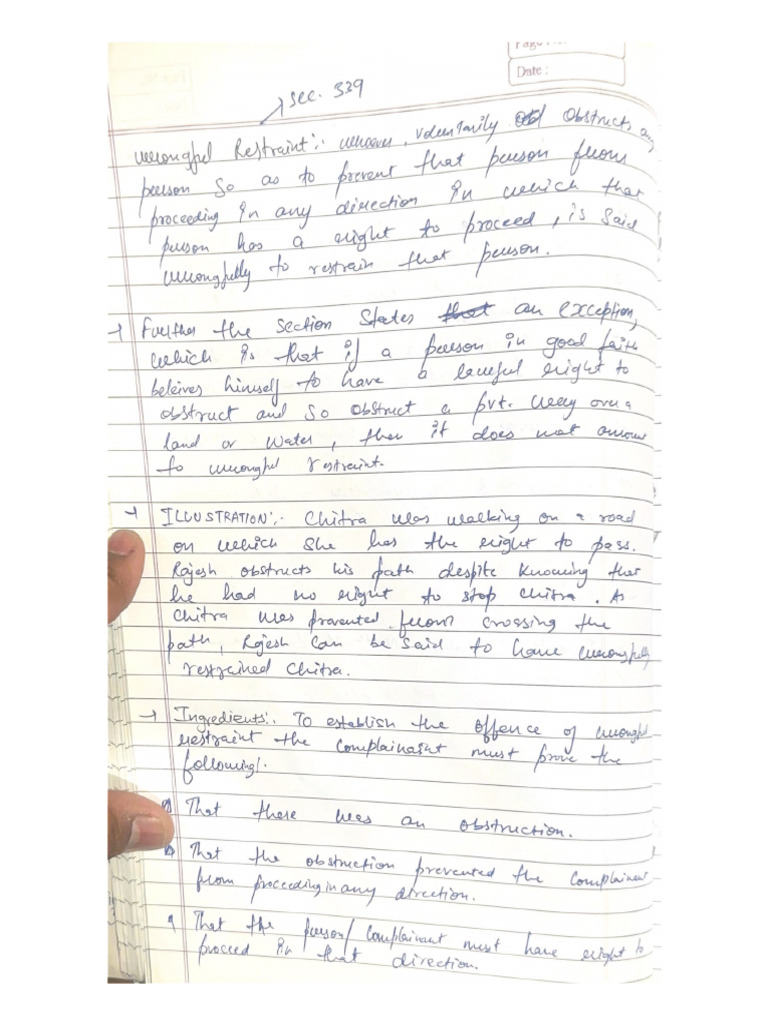 Page No.
Date :
Sec. 339
Wrongful Restraint:- Whoever, voluntarily Obstructs any
person so as to prevent that person from
proceeding in any direction in which that
person has a right to proceed, is said
wrongfully to restrain that person.
→ Further the section states that an exception,
which is that if a person in good faith
beleives himself to have a lawful right to
obstruct and so obstruct a pvt. way over a
land or water, then it does not amount
to wrongful restraint.
→ ILLUSTRATION:- Chitra was walking on a road
on which she has the right to pass.
Rajesh obstructs his path despite knowing that
he had no right to stop chitra. As
chitra was pravented from crossing the
path, Rajesh can be said to have wrongfully
restrained Chitra.
→ Ingredients:- To establish the offence of wrongful
restraint the complainaint must prove the
following:-
That there was an obstruction.
That the obstruction prevented the complainant
from proceeding in any direction.
That the person/complainant must have right to
proceed in that direction.